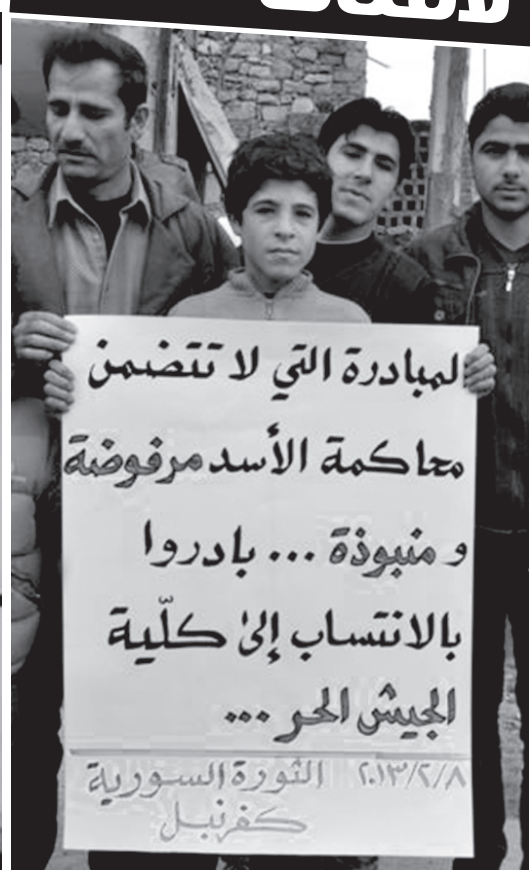 المبادرة التي لا تتضمن
محاكمة الأسد مرفوضة
و منبوذة ... بادروا
بالانتساب إلى كلّية
الجيش الحر ...
٢٠١٣/٢/٨ الثورة السورية
كفرنبل